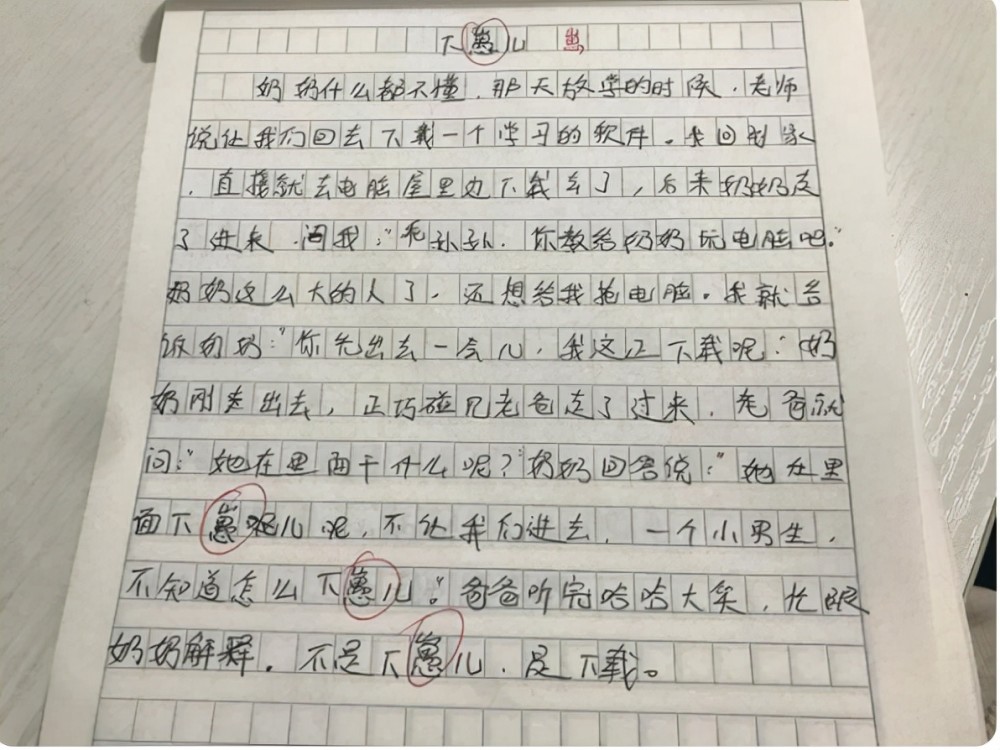 下崽儿 崽
奶奶什么都不懂，那天放学的时候，老师
说让我们回去下载一个学习的软件。我回到家
，直接就去电脑屋里边下载去了，后来奶奶走
了进来，问我：“乖孙孙，你教给奶奶玩电脑吧。”
奶奶这么大的人了，还想给我抢电脑。我就告
诉奶奶：“你先出去一会儿，我这正下载呢：”奶
奶刚走出去，正巧碰见老爸走了过来，老爸就
问：“她在里面干什么呢？”奶奶回答说：“她在里
面下崽呢儿呢，不让我们进去，一个小男生，
不知道怎么下崽儿。”爸爸听完哈哈大笑，忙跟
奶奶解释，不是下崽儿，是下载。